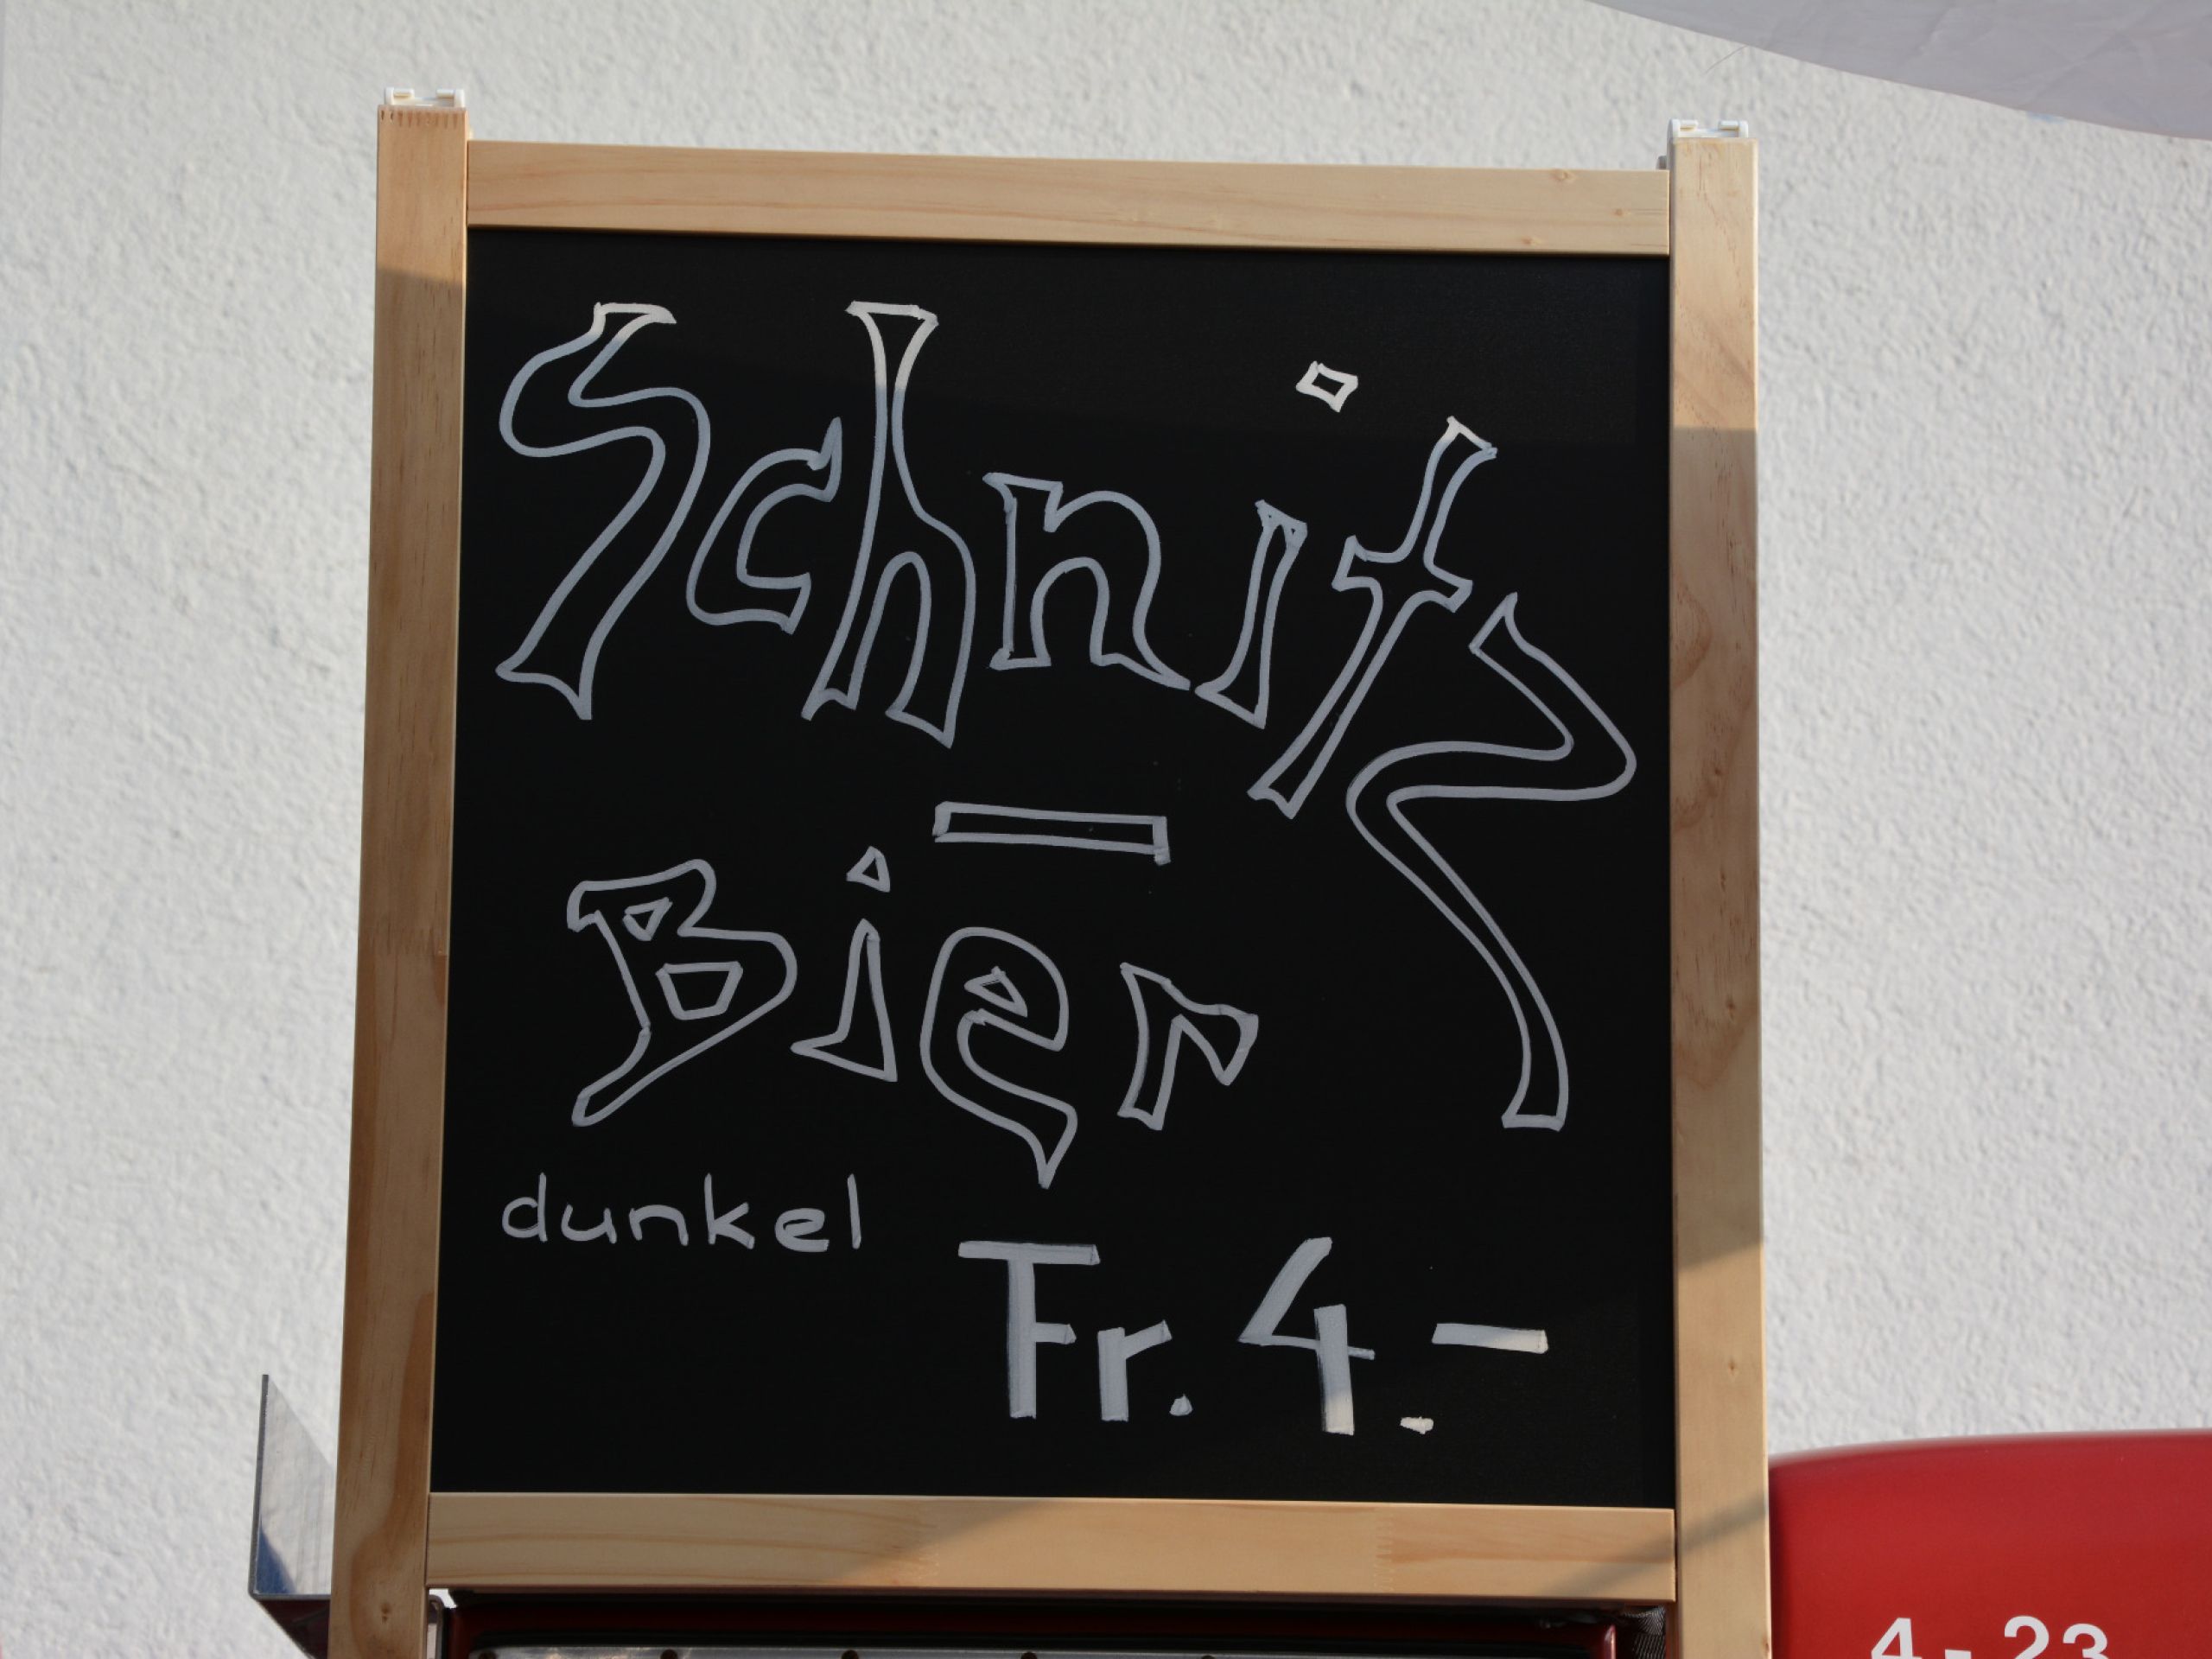 Schnitz
–
Bier
dunkel
Fr. 4.–
4 - 23